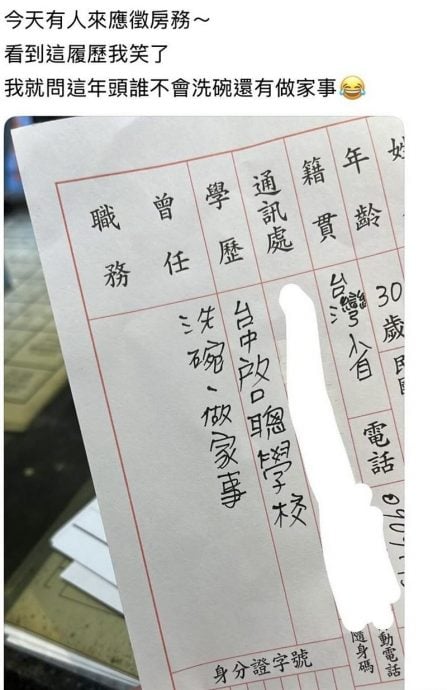 今天有人來應徵房務～
看到這履歷我笑了
我就問這年頭誰不會洗碗還有做家事😂
姓
年齡
30歲
籍貫
台灣省
電話
通訊處
學歷
台中啟聰學校
曾任
職務
洗碗、做家事
動電話
隨身碼
身分證字號